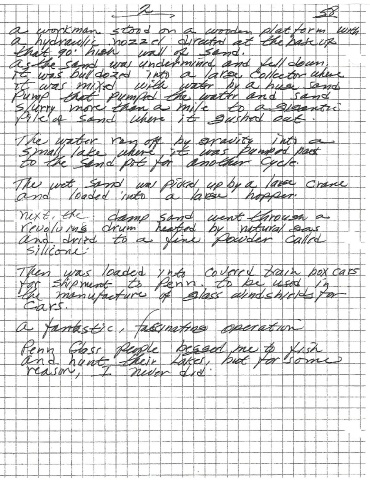 2 58.
a workman stood on a wooden platform with
a hydraulic nozzel directed at the base of
that 90' high wall of sand.
As the sand was undermined and fell down,
it was bulldozed into a large collector where
it was mixed with water by a huge sand
pump that pumped the water and sand
slurry more than a mile to a gigantic
pile of sand where it gushed out.
The water ran off by gravity into a
small lake where it was pumped back
to the sand pit for another cycle.
The wet sand was picked up by a large crane
and loaded into a large hopper.
next, the damp sand went through a
revolving drum heated by natural gas
and dried to a fine powder called
silicone.
Then was loaded into covered train box cars
for shipment to Penn. to be used in
the manufacture of glass windshields for
cars.
a fantastic, fascinating operation
Penn Glass people begged me to fish
and hunt their lakes, but for some
reason, I never did.